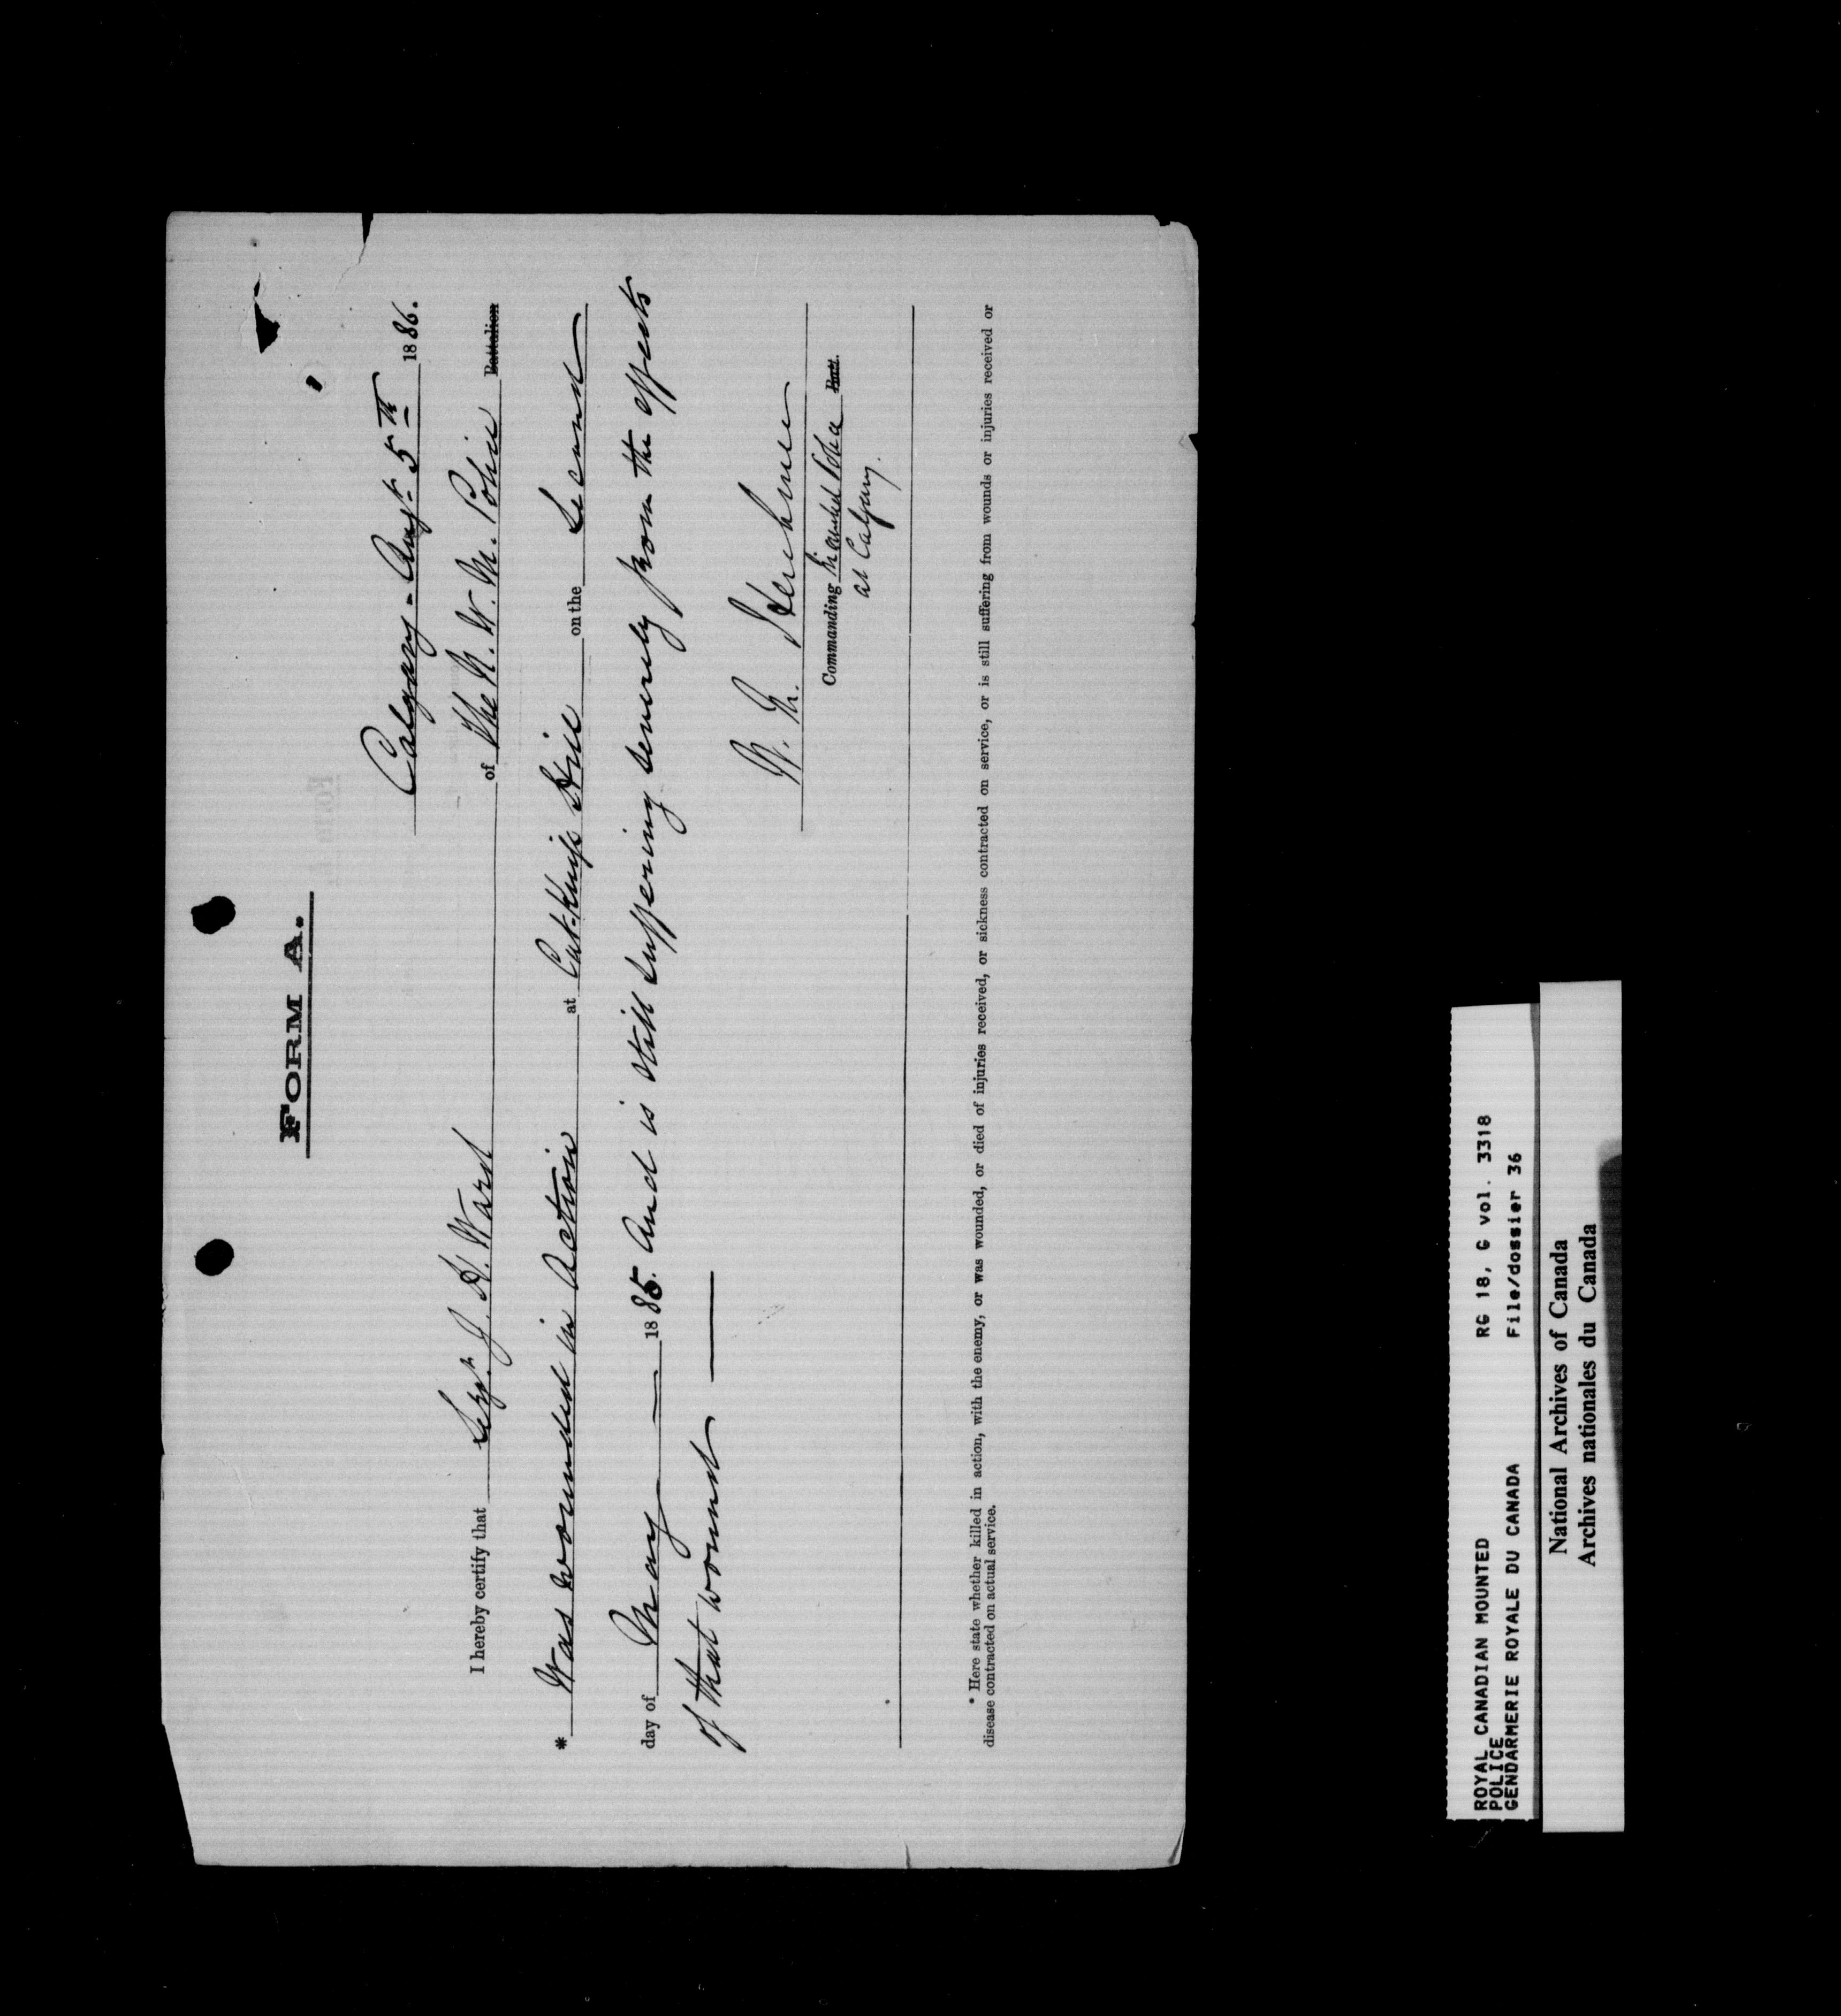 FORM A.
Calgary - Augt 5th 1886.
I hereby certify that Sergt J. H. Ward of The N. W. M. Police Battalion
* Was wounded in Action at Cut-Knife Hill on the Second
day of May 1885. And is still suffering severely from the effects
of that wound
Commanding Mounted Police Batt.
at Calgary.
* Here state whether killed in action, with the enemy, or was wounded, or died of injuries received, or sickness contracted on service, or is still suffering from wounds or injuries received or
disease contracted on actual service.
ROYAL CANADIAN MOUNTED RG 18, G vol. 3318
POLICE
GENDARMERIE ROYALE DU CANADA File/dossier 36
National Archives of Canada
Archives nationales du Canada